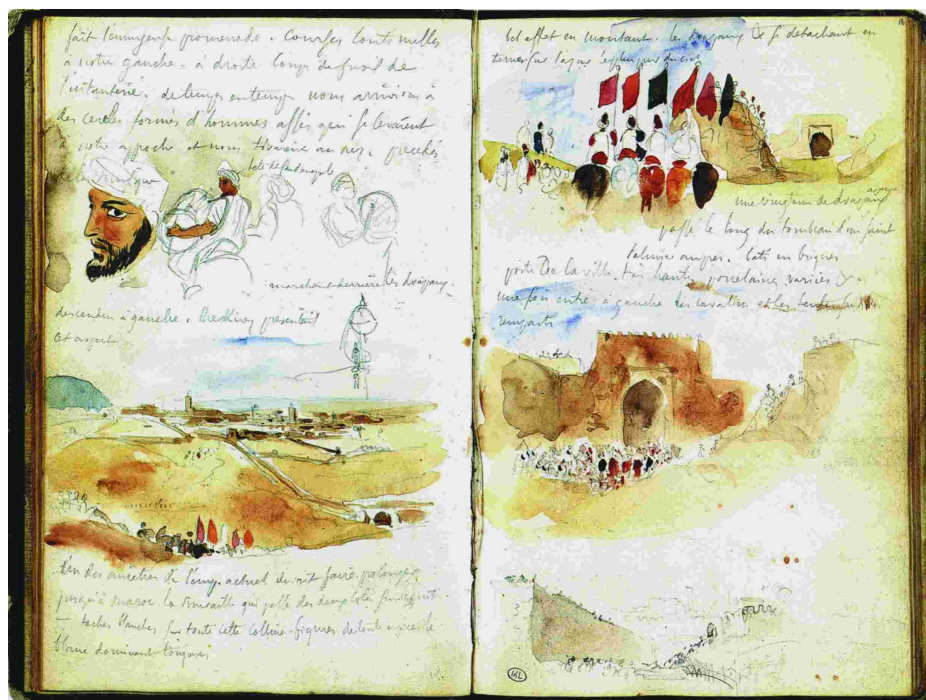 fait l'immense promenade. Courses
à notre gauche. à droite coups de fusil de
l'infanterie. de temps en temps nous arrivions à
des cercles formés d'hommes assis qui se levaient
à notre approche et nous tiraient au nez. précédés
de la musique
marchent derrière les drapeaux.
descendu à gauche. présentait
cet aspect
Un des ancêtres de l'emp. actuel devait faire prolonger
jusqu'à Maroc la muraille qui passe des deux côtés
taches blanches sur toute cette colline. figures de toute espèce le
blanc dominant toujours
bel effet en montant. les drapeaux se détachant en
terne sur l'azur le plus pur du ciel
une vingtaine de drapeaux
passé le long du tombeau d'un saint
palmier auprès. bâti en briques
porte de la ville très haute porcelaines variées
une fois entré à gauche les cavaliers et les tentes
remparts
ML